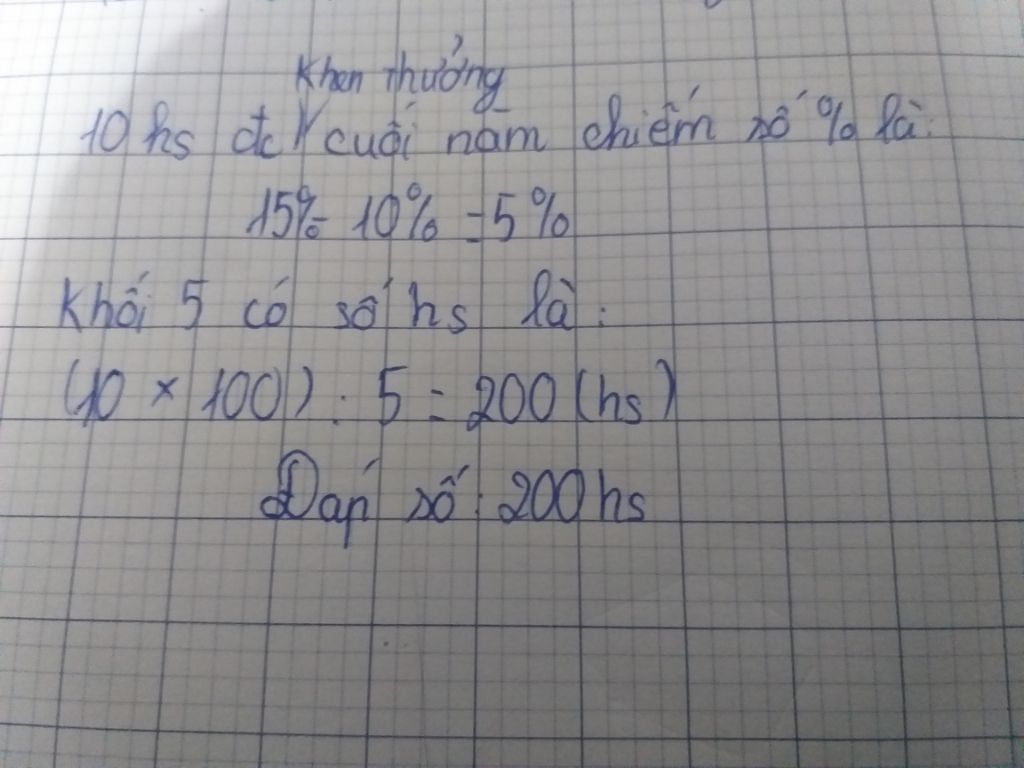 Khen thưởng
10 hs đc V cuối năm chiếm số % là:
15% - 10% = 5%
Khối 5 có số hs là:
(10 x 100) : 5 = 200 (hs)
Đáp số: 200 hs